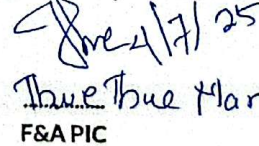 4/7/25
Thue Thue Mar
F&A PIC